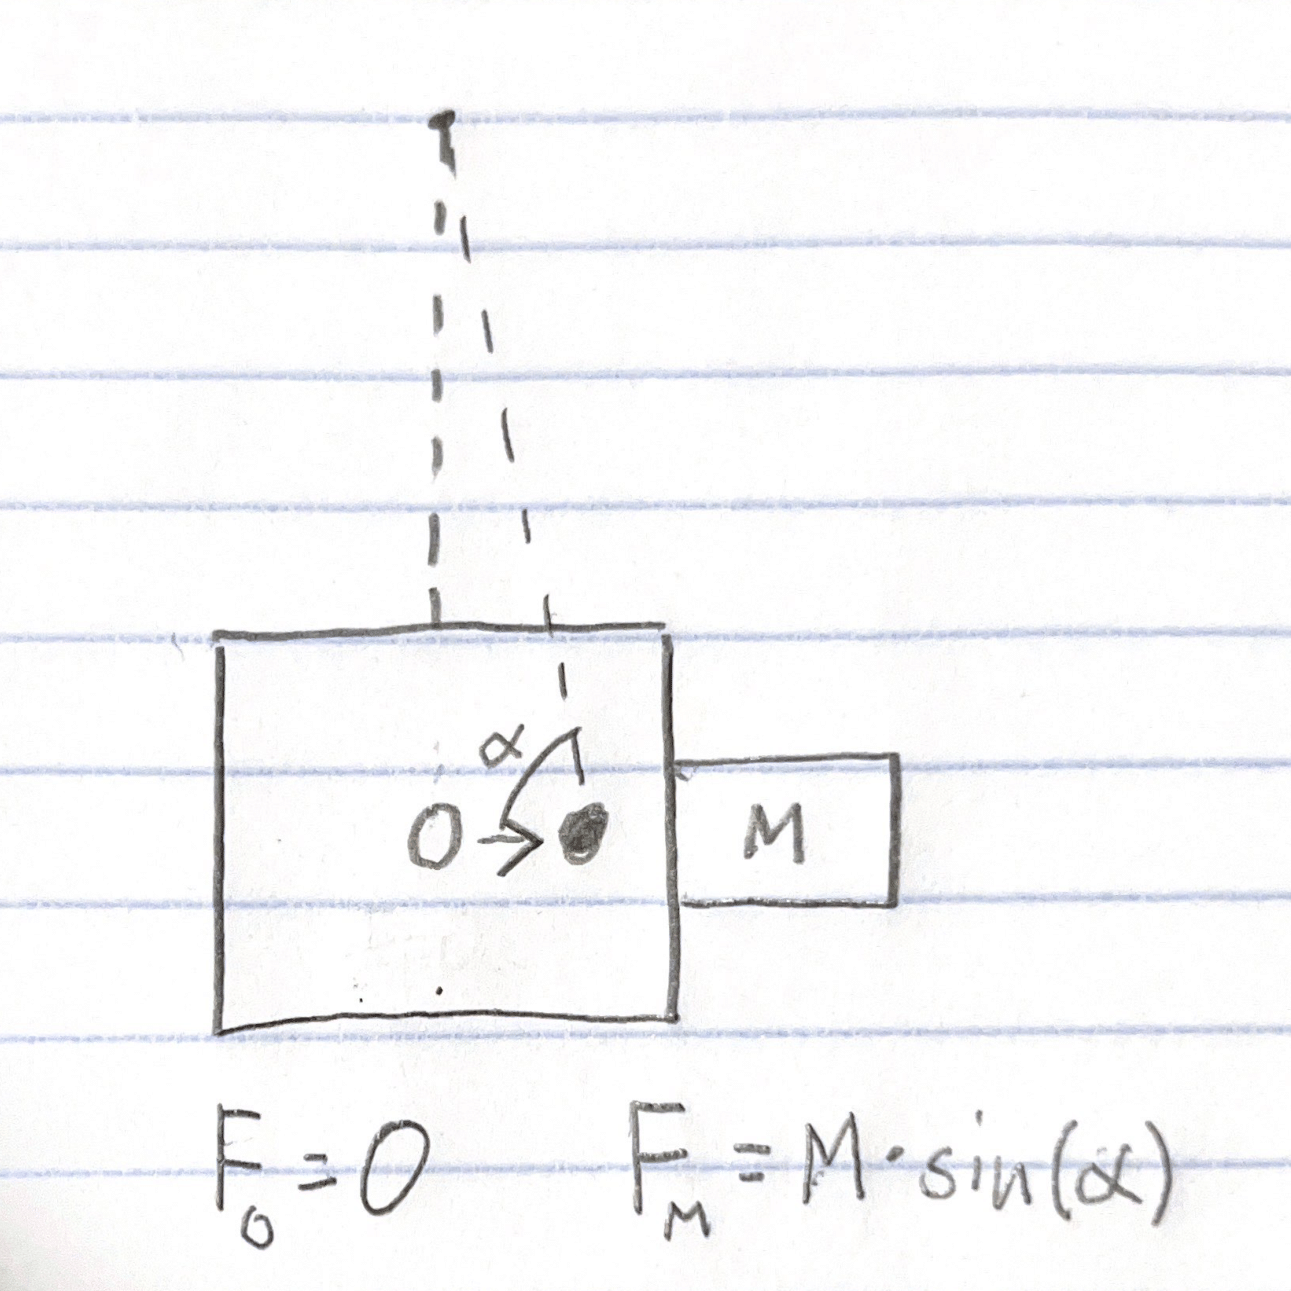 α
O → M
F₀ = 0 F_M = M·sin(α)